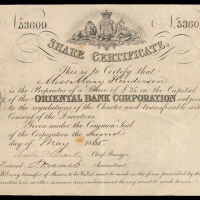 No. 53600 No. 53600
SHARE CERTIFICATE.
This is to Certify that
Miss Mary Henderson
is the Proprietor of a Share of £25 in the Capital
of the ORIENTAL BANK CORPORATION subject
to the regulations of the Charter and transferable with
Consent of the Directors.
Given under the Common Seal
of the Corporation the Second
day of May 1865
Chief Manager
Accountant